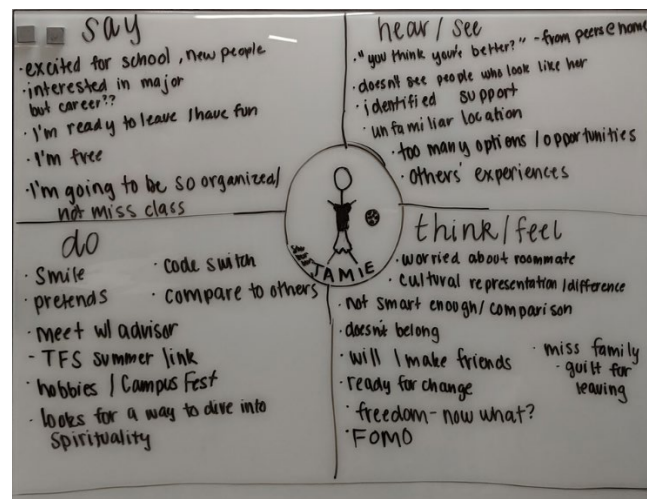 say
· excited for school, new people
· interested in major
but career??
· I'm ready to leave / have fun
· I'm free
· I'm going to be so organized/
not miss class
hear / see
· "you think you're better?" - from peers @ home
· doesn't see people who look like her
· identified support
· unfamiliar location
· too many options / opportunities
· others' experiences
JAMIE
do
· Smile
· code switch
· pretends
· compare to others
· meet w/ advisor
- TFS summer link
· hobbies / Campus Fest
· looks for a way to dive into
Spirituality
think/feel
· worried about roommate
· cultural representation /difference
· not smart enough/comparison
· doesn't belong
· will I make friends
· ready for change
· freedom - now what?
· FOMO
· miss family
· guilt for
leaving